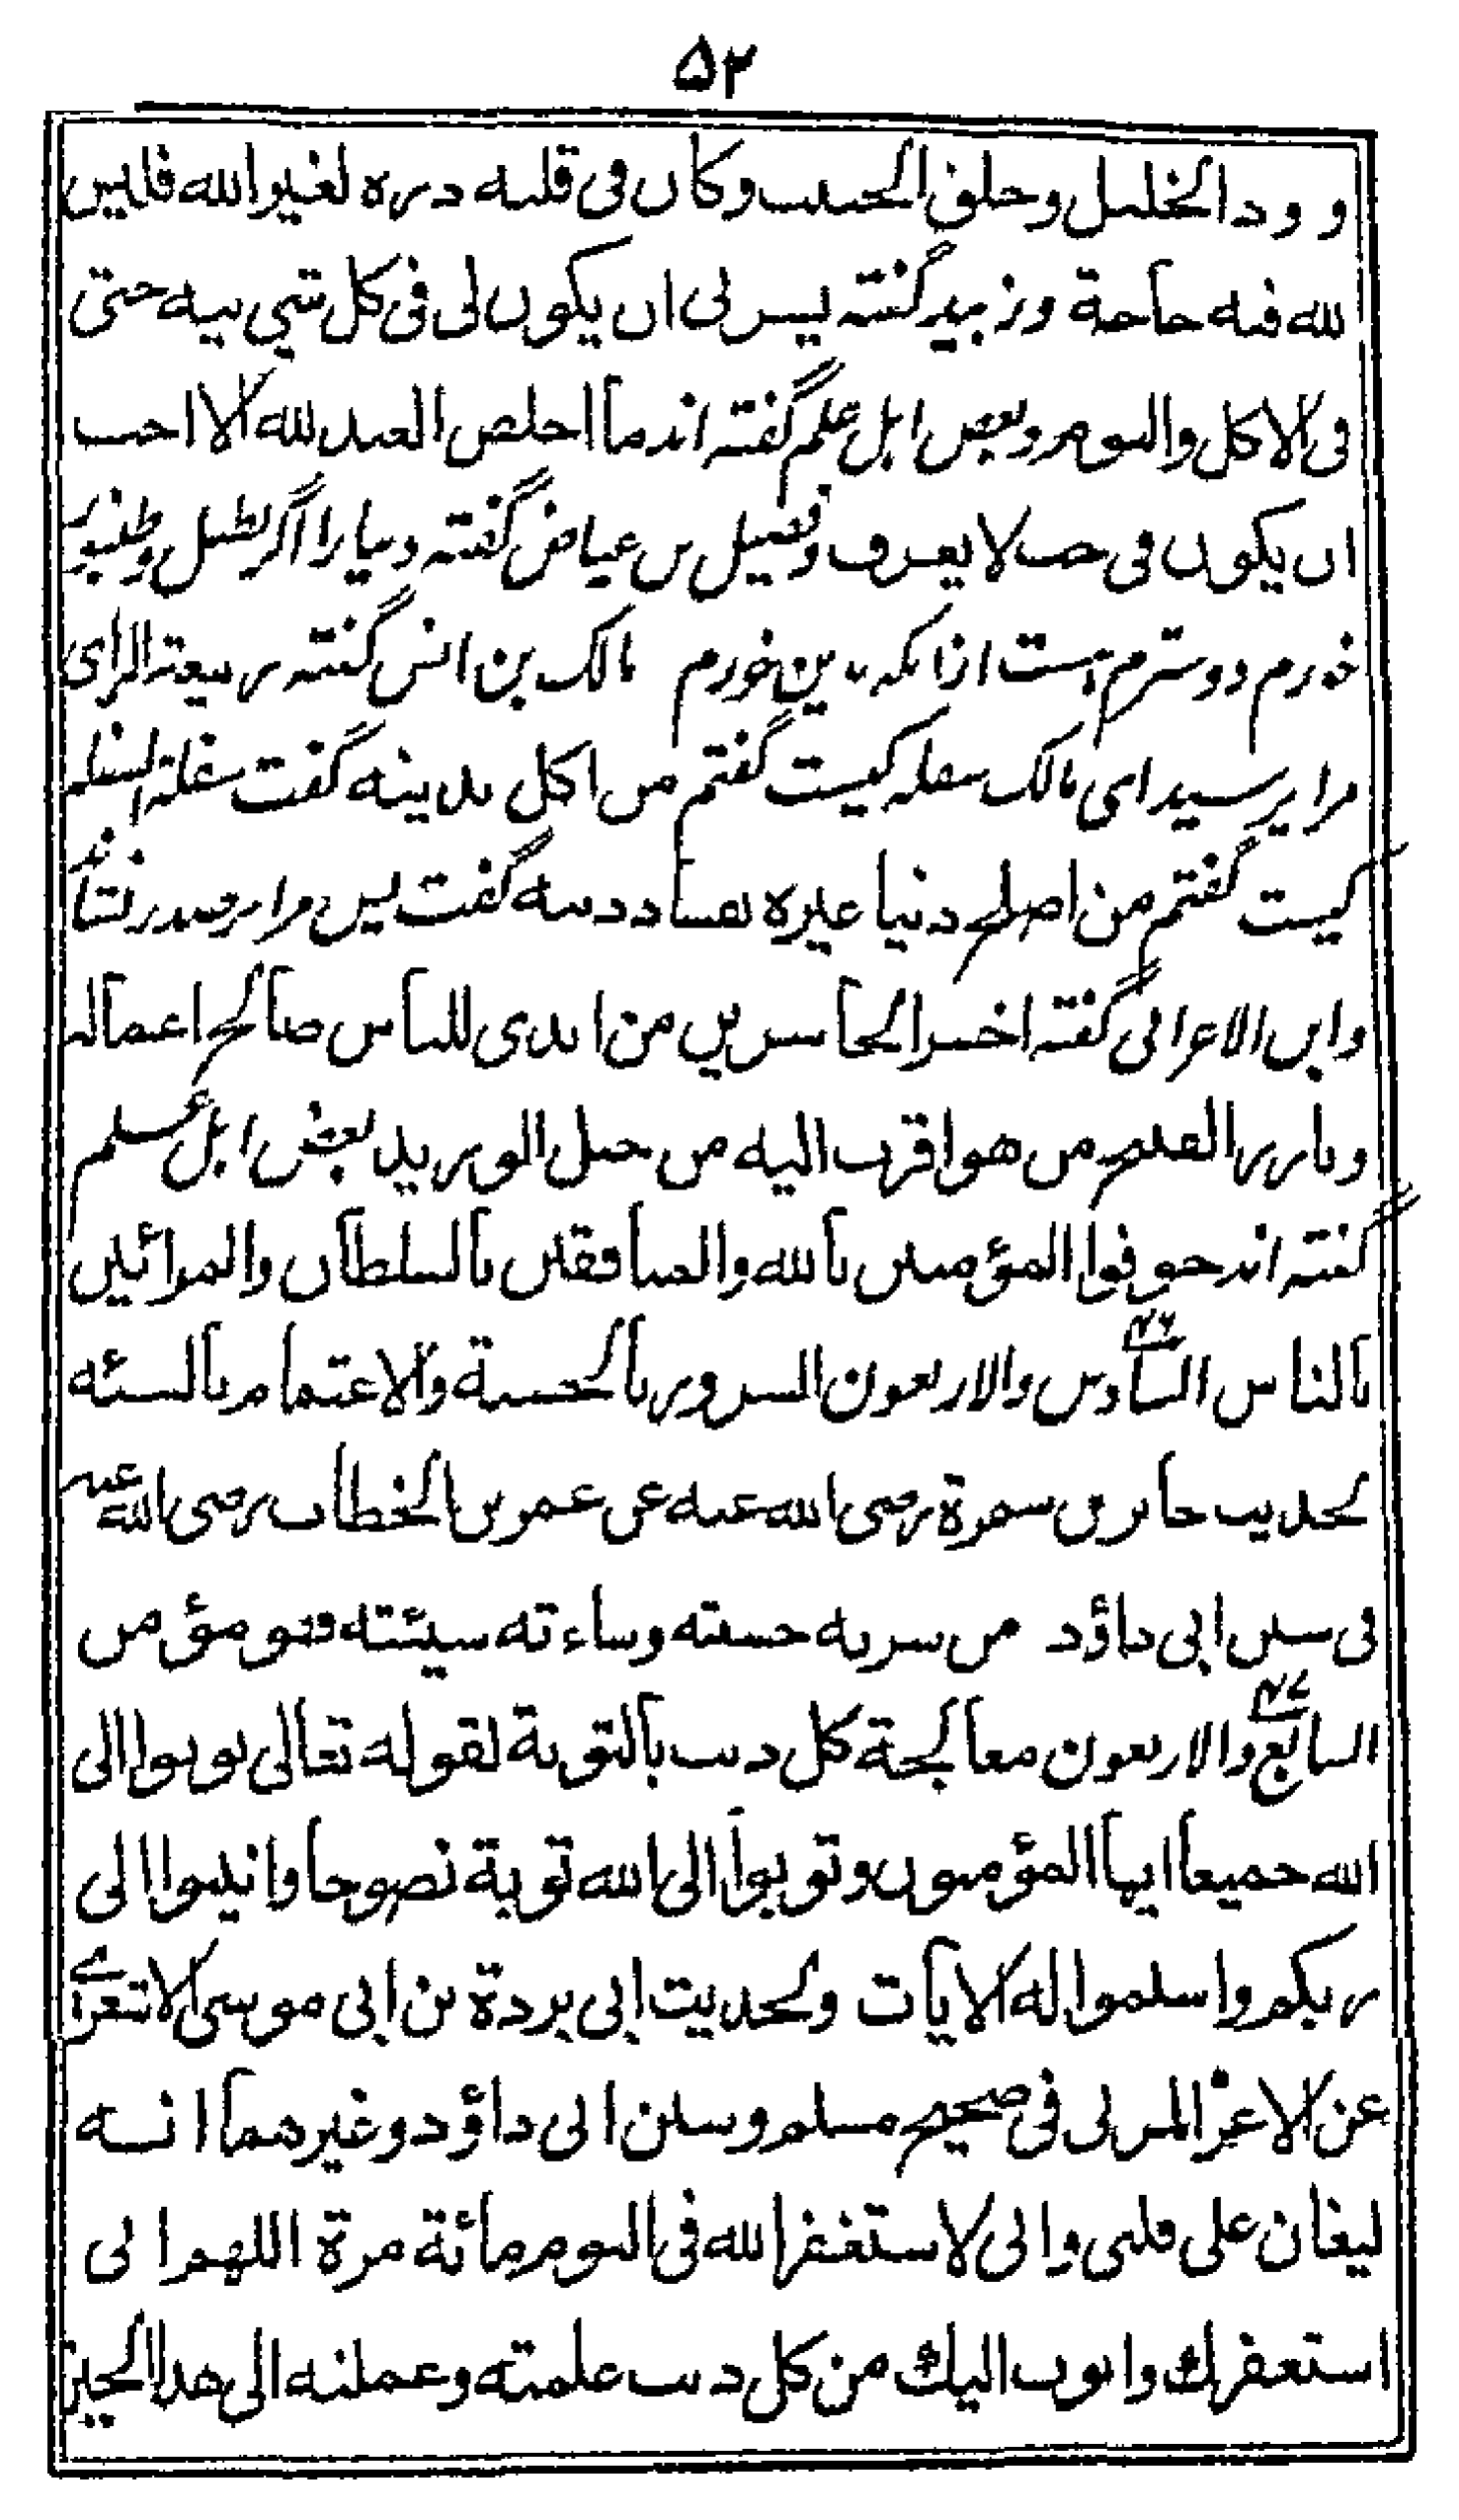 ۵۲
و ود الخلیل وخلق الحبیب وکان فی قلبه ذره لغیر الله فلیس
لله فیه حاجة وزبید گفته یسرنی ان یکون لی فی کل شی نیه حتی
فی الاکل والنوم وبعض اہل علم گفته اند ما اخلص العبد لله الا احب
ان یکون فی جب لا یعرف وفضیل بن عیاض گفته دنیا را اگر بطبل وطنبور
خورم دوسترم ہست ازانکه بدین خورم مالک بن انس گفته ربیعة الرای
مرا پرسید ای مالک سفله کیست گفتم من اکل بدینه گفت سفلة السفله
کیست گفتم من اصلح دنیا غیره بفساد دینه گفت پس مرا بر صدر نشاند
وابن الاعرابی گفته اخسر الخاسرین من ابدی للناس صالح اعماله
وبارز بالقبیح من هو اقرب الیه من حبل الورید بعض اہل علم
گفته اند خوفوا المؤمنین بالله والمنافقین بالسلطان والمرائین
بالناس السادس والاربعون السرور بالحسنة والاغتمام بالسیئه
۴۶
لحدیث جابر بن سمرة رضی الله عنه عن عمر بن الخطاب رضی الله عنه
فی سنن ابی داؤد من سرته حسنته وساءته سیئته فهو مؤمن
۴۷
السابع والاربعون معالجة کل ذنب بالتوبة لقوله تعالی توبوا الی
الله جمیعا ایها المؤمنون وتوبوا الی الله توبة نصوحا وانیبوا الی
ربکم واسلموا له الایات ولحدیث ابی بردة بن ابی موسی الاشعری
عن الاغر المزنی فی صحیح مسلم وسنن ابی داؤد وغیرهما انه
لیغان علی قلبی وانی لاستغفر الله فی الیوم مائة مرة اللهم انی
استغفرك واتوب الیك من کل ذنب علمته وعملته الی هذا الحین